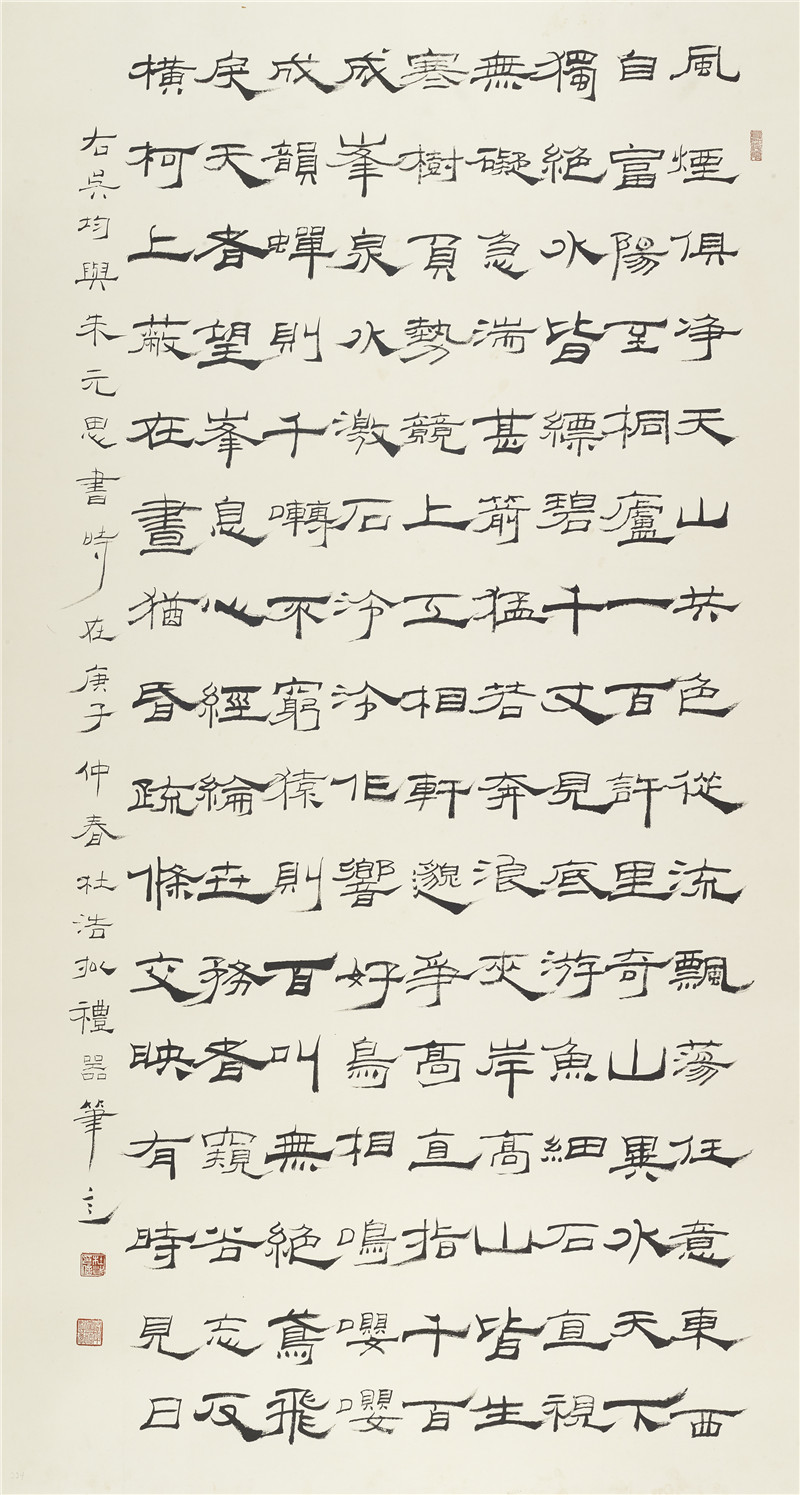 風煙俱淨天山共色從流飄蕩任意東西
自富陽至桐廬一百許里奇山異水天下
獨絕水皆縹碧千丈見底游魚細石直視
無礙急湍甚箭猛若奔浪夾岸高山皆生
寒樹負勢競上互相軒邈爭高直指千百
成峯泉水激石泠泠作響好鳥相鳴嚶嚶
成韻蟬則千囀不窮猿則百叫無絕鳶飛
戾天者望峯息心經綸世務者窺谷忘反
橫柯上蔽在晝猶昏疏條交映有時見日
右吳均與朱元思書時在庚子仲春杜浩拟禮器筆意